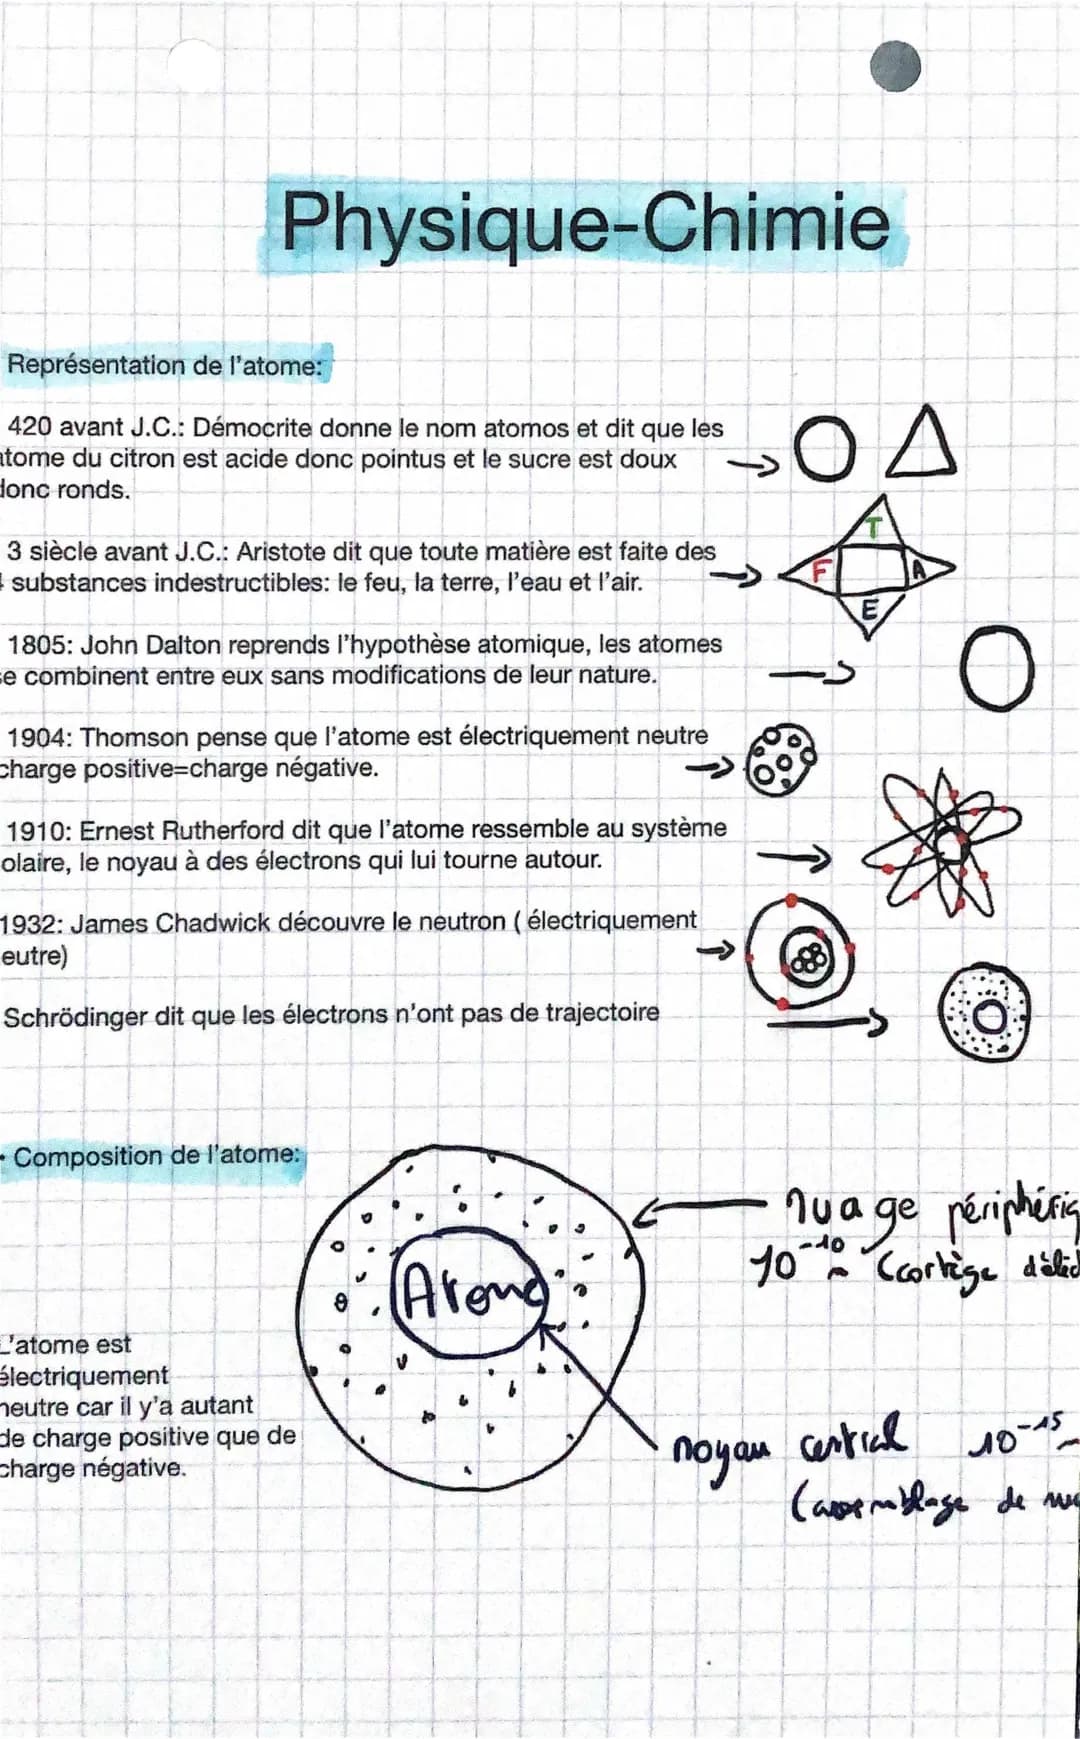 Physique-Chimie
Représentation de l'atome:
420 avant J.C.: Démocrite donne le nom atomos et dit que les
atome du citron est acide donc pointus et le sucre est doux
donc ronds.
T
F
A
E
3 siècle avant J.C.: Aristote dit que toute matière est faite des
substances indestructibles: le feu, la terre, l'eau et l'air.
1805: John Dalton reprends l'hypothèse atomique, les atomes
se combinent entre eux sans modifications de leur nature.
1904: Thomson pense que l'atome est électriquement neutre
charge positive=charge négative.
1910: Ernest Rutherford dit que l'atome ressemble au système
olaire, le noyau à des électrons qui lui tourne autour.
1932: James Chadwick découvre le neutron ( électriquement
eutre)
Schrödinger dit que les électrons n'ont pas de trajectoire
• Composition de l'atome:
nuage périphériq
10⁻¹⁰ (cortège d'élec
Atome
L'atome est
électriquement
neutre car il y'a autant
de charge positive que de
charge négative.
noyau central 10⁻¹⁵
(assemblage de nuc